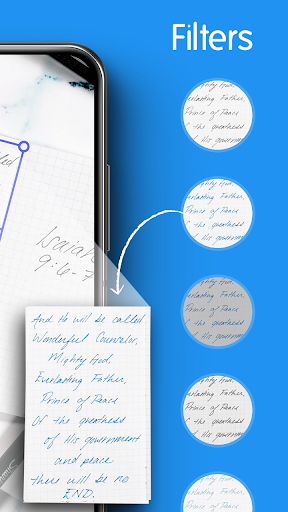 Filters
Isaiah
9:6-7
And He will be called
Wonderful Counselor,
Mighty God,
Everlasting Father,
Prince of Peace
Of the greatness
of His government
and peace
there will be no
END.
Father,
Prince of Peace
of the greatness
Father,
Prince of Peace
of the greatness
Father,
Prince of Peace
of the greatness
Father,
Prince of Peace
of the greatness
Father,
Prince of Peace